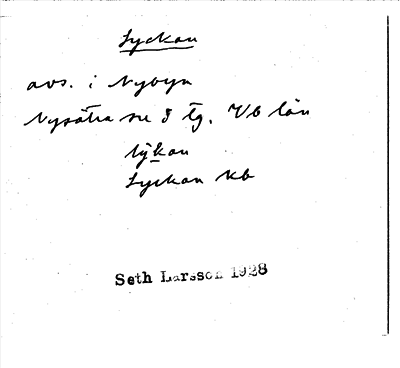 Lyckan
avs. i Nybyn
Nysätra sn 8 tg. Vb län
lỳkan
Lyckan kb
Seth Larsson 1928